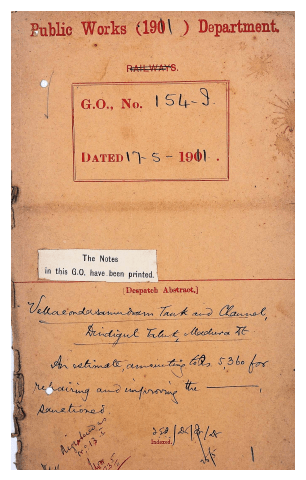 Public Works (1911) Department.
RAILWAYS.
G.O., No. 154-I.
DATED 17-5-1911.
The Notes
in this G.O. have been printed.
[Despatch Abstract.]
Tank and Channel,
Dindigul Taluk, Madura Dt
An estimate, amounting to Rs 5,360 for
repairing and improving the ———,
sanctioned.
Indexed.